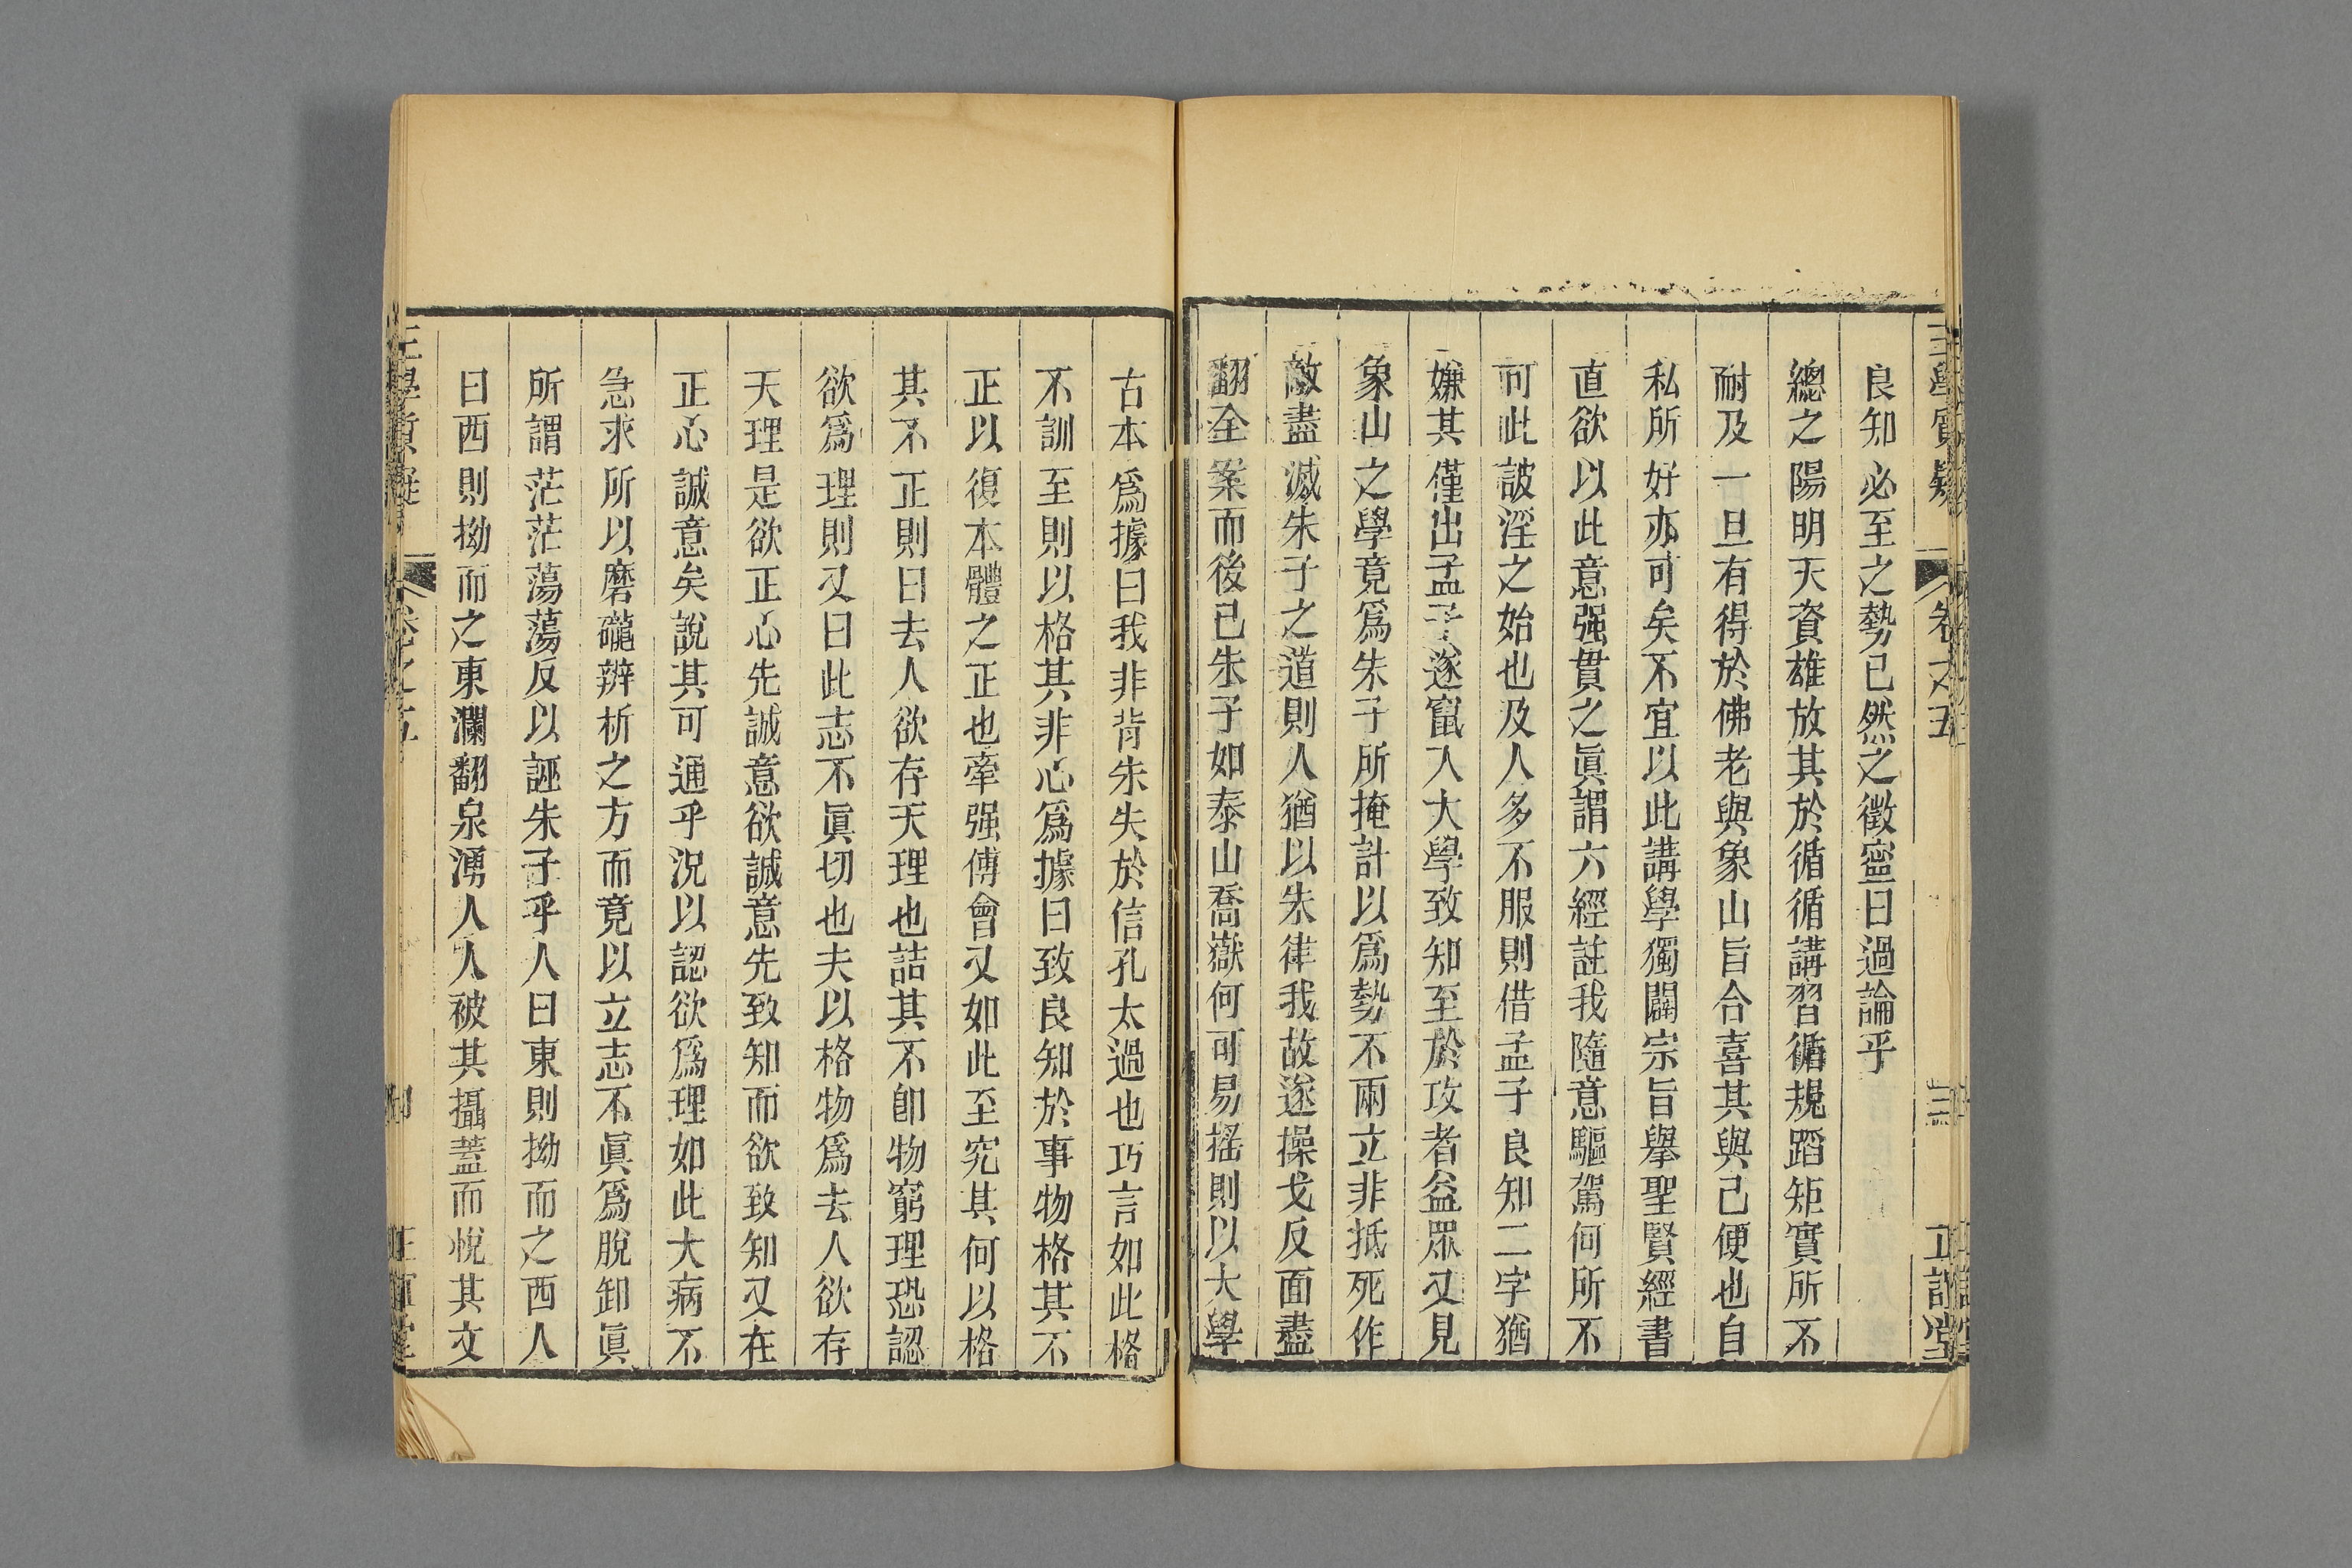 王學質疑 卷之五 三 正誼堂
良知必至之勢已然之徵寧曰過論乎
總之陽明天資雄放其於循循講習循規蹈矩實所不
耐及一旦有得於佛老與象山旨合喜其與己便也自
私所好亦可矣不宜以此講學獨闢宗旨舉聖賢經書
直欲以此意强貫之眞謂六經註我隨意驅駕何所不
可此詖淫之始也及人多不服則借孟子良知二字猶
嫌其僅出孟子遂竄入大學致知至於攻者益眾又見
象山之學竟爲朱子所掩計以爲勢不兩立非抵死作
敵盡滅朱子之道則人猶以朱律我故遂操戈反面盡
翻全案而後已朱子如泰山喬嶽何可易搖則以大學
古本爲據曰我非背朱失於信孔太過也巧言如此格
不訓至則以格其非心爲據曰致良知於事物格其不
正以復本體之正也牽强傅會又如此至究其何以格
其不正則曰去人欲存天理也詰其不卽物窮理恐認
欲爲理則又曰此志不眞切也夫以格物爲去人欲存
天理是欲正心先誠意欲誠意先致知而欲致知又在
正心誠意矣說其可通乎況以認欲爲理如此大病不
急求所以磨礲辨析之方而竟以立志不眞爲脫卸眞
所謂茫茫蕩蕩反以誣朱子乎人曰東則拗而之西人
曰西則拗而之東瀾翻泉湧人人被其攝蓋而悅其文
王學質疑 卷之五